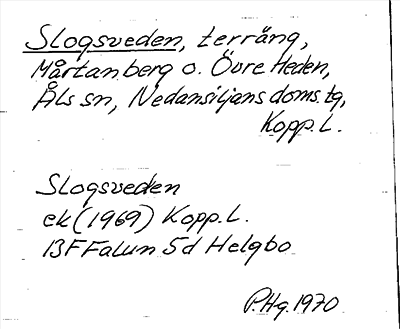 Slogsveden, terräng,
Mårtanberg o. Övre Heden,
Åls sn, Nedansiljans doms. tg,
Kopp. L.
Slogsveden
ek (1969) Kopp. L.
13F Falun 5d Helgbo
P.Hg. 1970